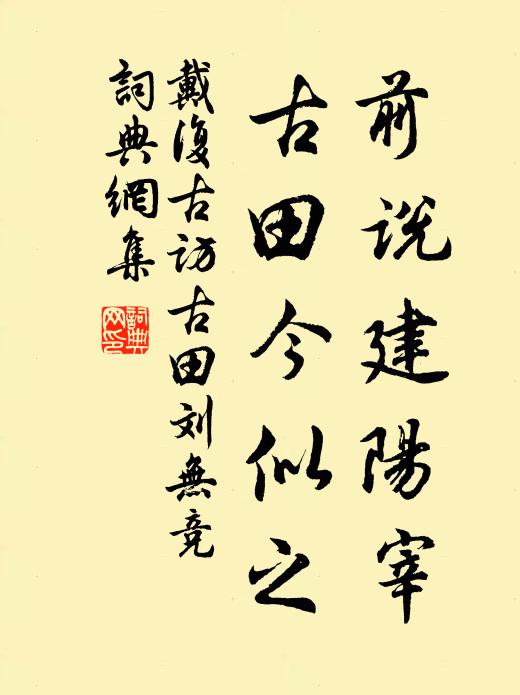 前说建陽宰
古田今似之
戴復古访古田刘無竞
詞典網集
詞典网印